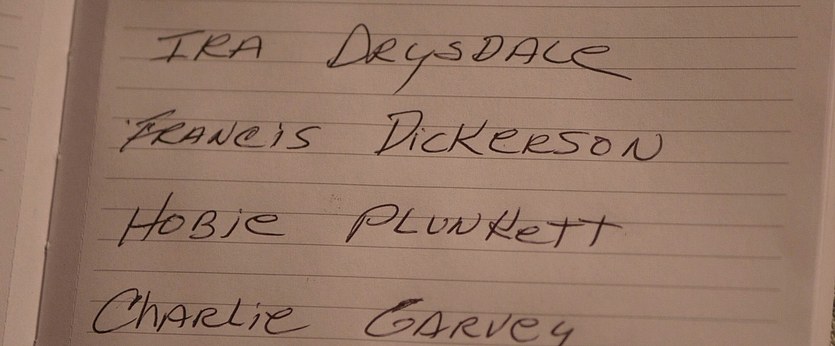 IRA DRYSDALE
FRANCIS DICKERSON
HOBIE PLUNKETT
CHARLIE GARVEY